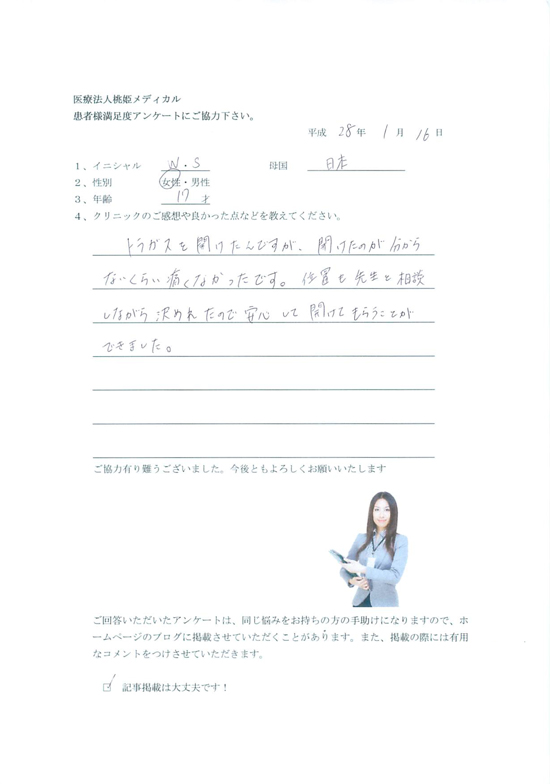 医療法人桃姫メディカル
患者様満足度アンケートにご協力下さい。
平成 28 年 1 月 16 日
1、イニシャル N・S 母国 日本
2、性別 女性・男性
3、年齢 17 才
4、クリニックのご感想や良かった点などを教えてください。
トラガスを開けたんですが、開けたのが分から
ないくらい痛くなかったです。位置も先生と相談
しながら決めれたので安心して開けてもらうことが
できました。
ご協力有り難うございました。今後ともよろしくお願いいたします
ご回答いただいたアンケートは、同じ悩みをお持ちの方の手助けになりますので、ホ
ームページのブログに掲載させていただくことがあります。また、掲載の際には有用
なコメントをつけさせていただきます。
☑ 記事掲載は大丈夫です！